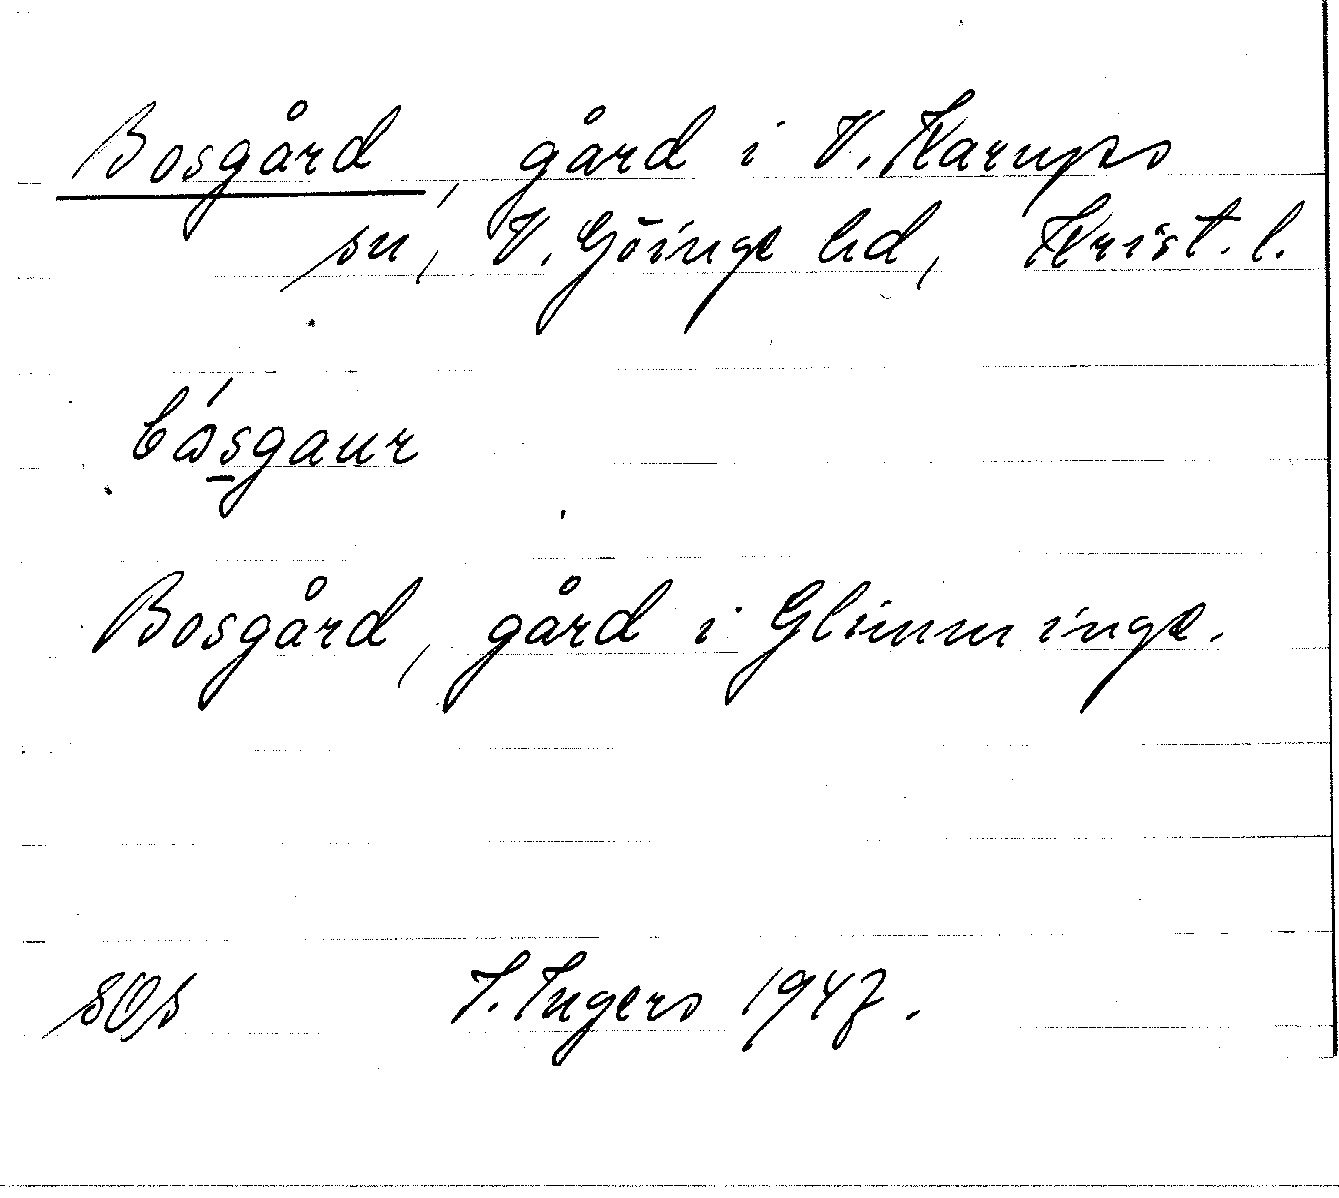 Bosgård, gård i V. Karups
sn, V. Göinge hd, Krist. l.
bósgaur
Bosgård, gård i Glimminge.
SOS I. Ingers 1947.